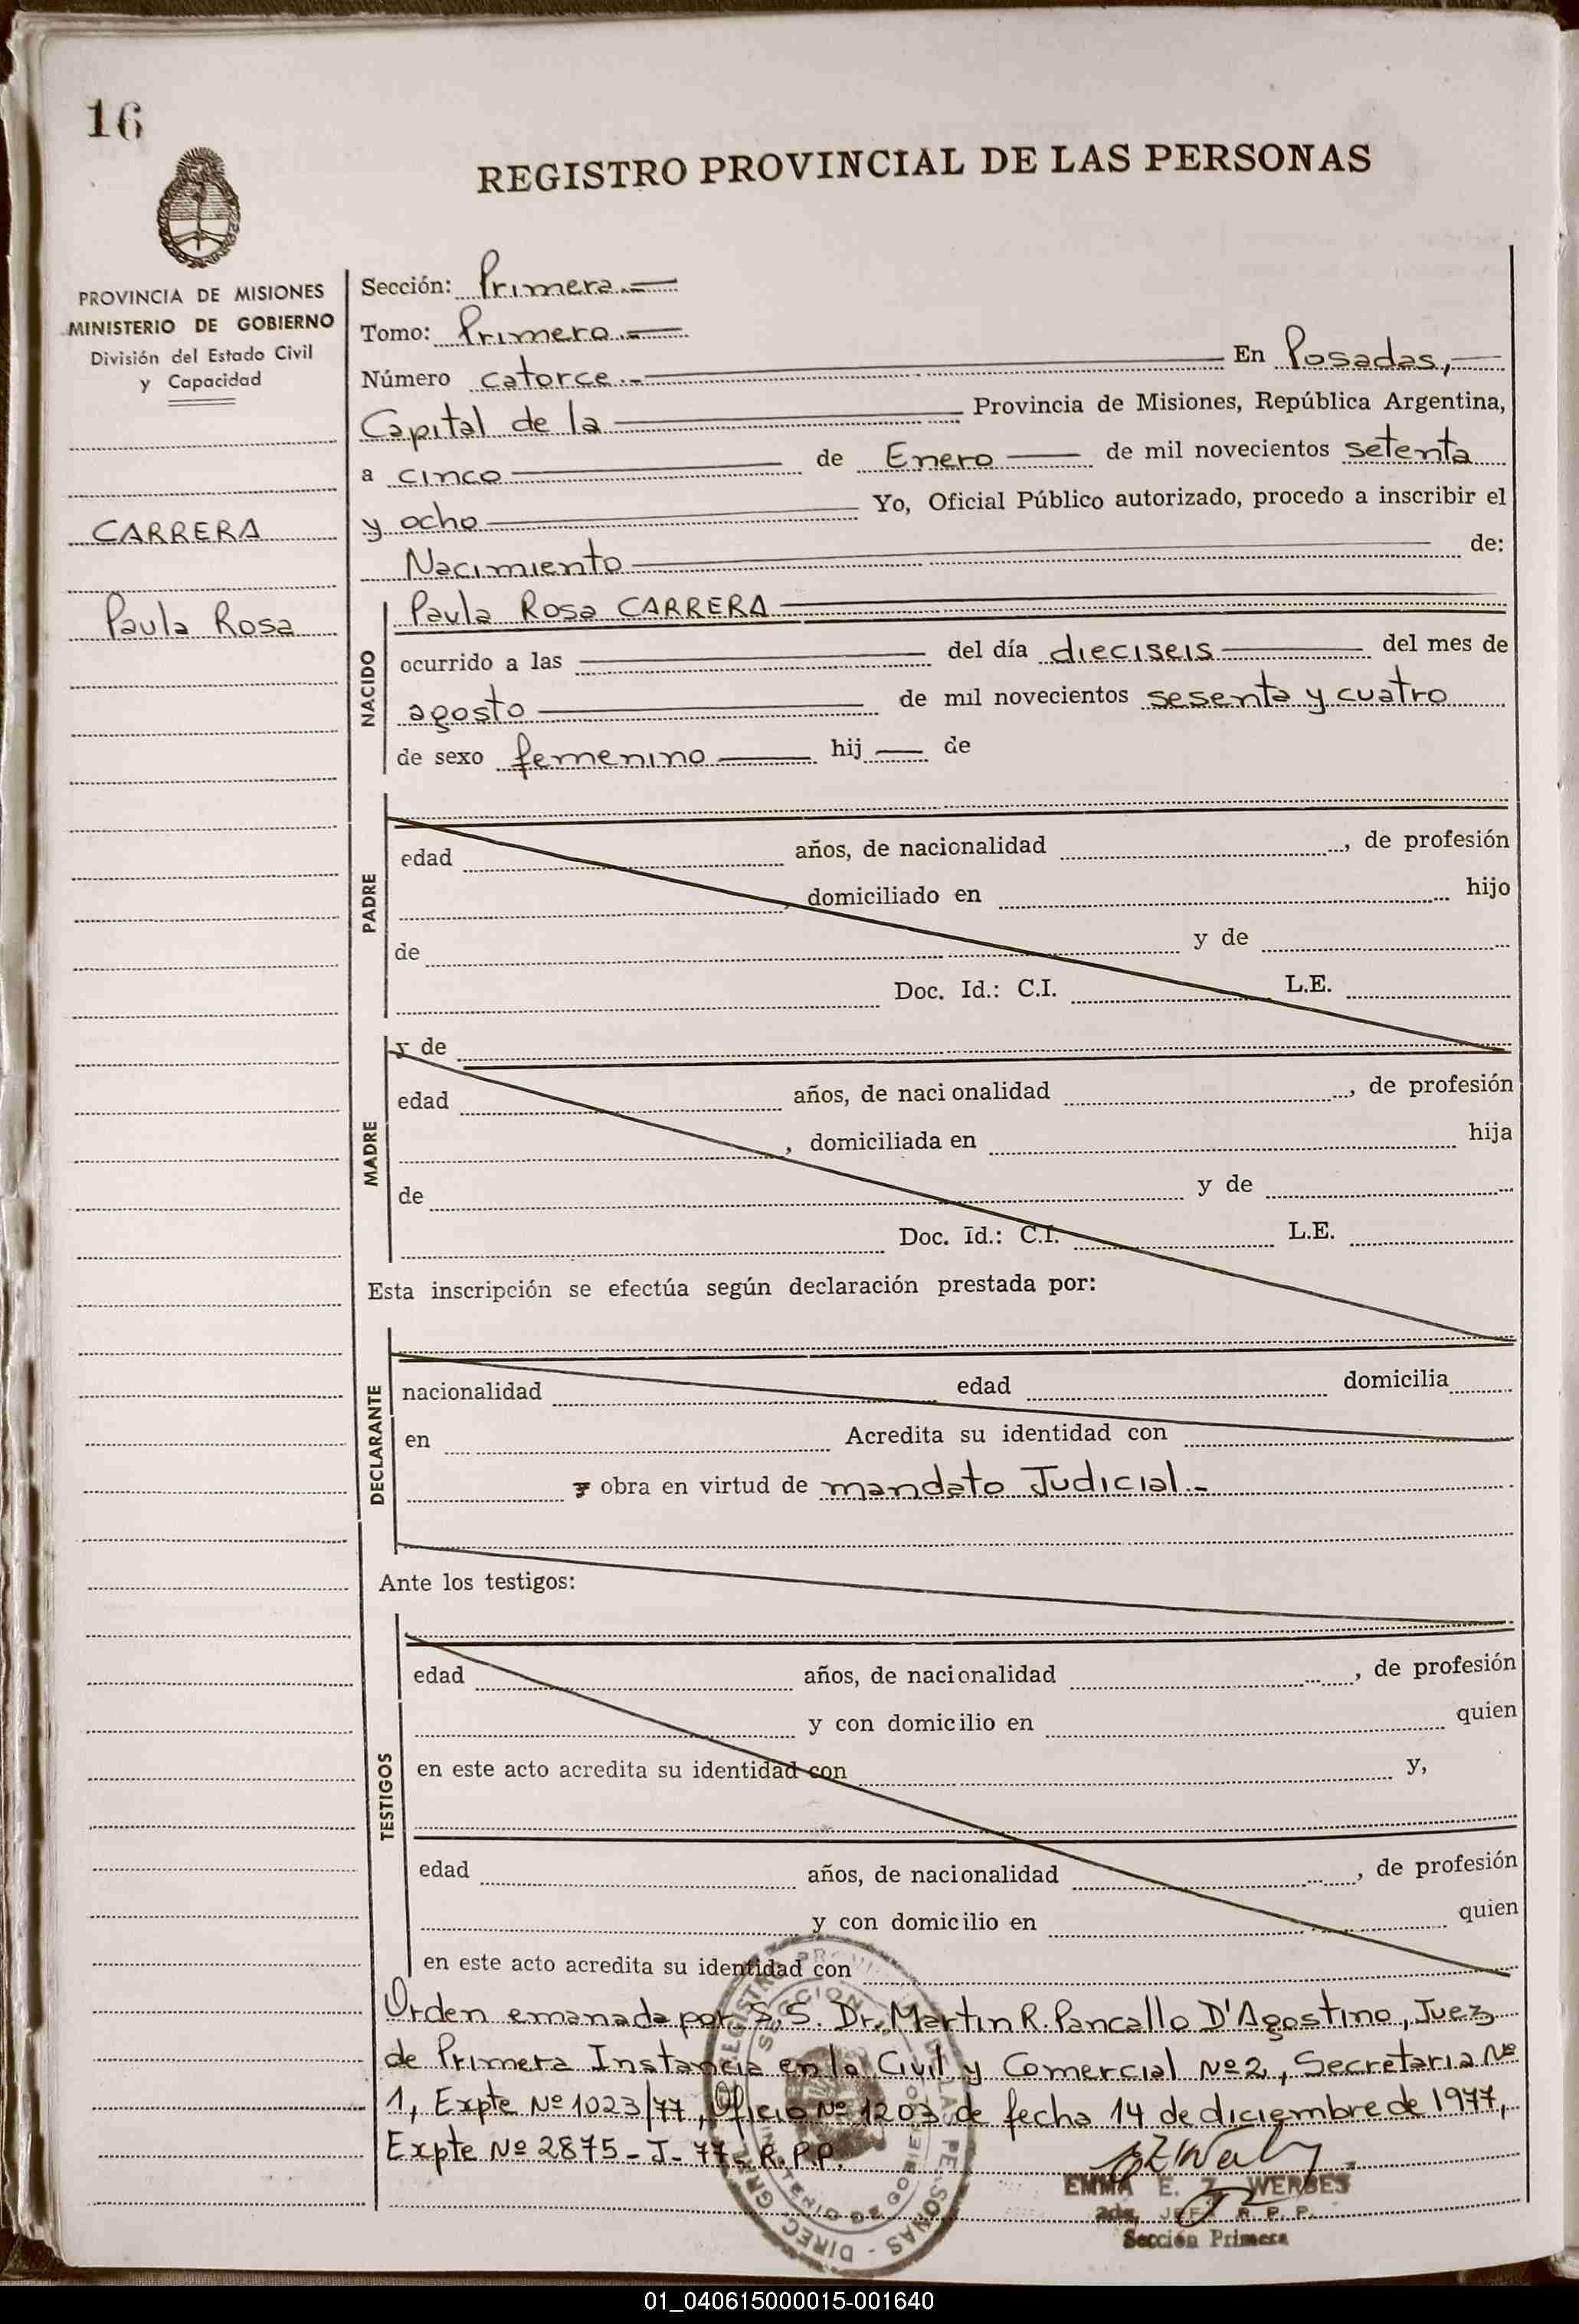 16
REGISTRO PROVINCIAL DE LAS PERSONAS
PROVINCIA DE MISIONES
MINISTERIO DE GOBIERNO
División del Estado Civil
y Capacidad
CARRERA
Paula Rosa
Sección: Primera.
Tomo: Primero.
Número catorce.- En Posadas,
Capital de la Provincia de Misiones, República Argentina,
a cinco de Enero de mil novecientos setenta
y ocho Yo, Oficial Público autorizado, procedo a inscribir el
Nacimiento de:
NACIDO
Paula Rosa CARRERA
ocurrido a las del día dieciseis del mes de
agosto de mil novecientos sesenta y cuatro
de sexo femenino hij de
PADRE
edad años, de nacionalidad , de profesión
domiciliado en hijo
de y de
Doc. Id.: C.I. L.E.
MADRE
y de
edad años, de nacionalidad , de profesión
, domiciliada en hija
de y de
Doc. Id.: C.I. L.E.
Esta inscripción se efectúa según declaración prestada por:
DECLARANTE
nacionalidad edad domicilia
en Acredita su identidad con
obra en virtud de mandato Judicial.-
Ante los testigos:
TESTIGOS
edad años, de nacionalidad , de profesión
y con domicilio en quien
en este acto acredita su identidad con y,
edad años, de nacionalidad , de profesión
y con domicilio en quien
en este acto acredita su identidad con
Orden emanada por S.S. Dr. Martin R. Pancallo D'Agostino, Juez
de Primera Instancia en lo Civil y Comercial Nº 2, Secretaria Nº
1, Expte Nº 1023/77, Oficio Nº 1203 de fecha 14 de diciembre de 1977,
Expte Nº 2875-J-77-R.P.P.
EMMA E. Z. WERBES
JEFE R. P. P.
Sección Primera
01_040615000015-001640